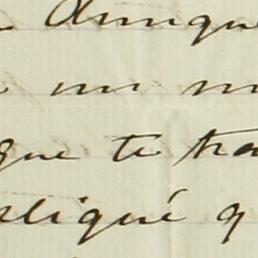 Aunque
un m
que te ha
pliqué q